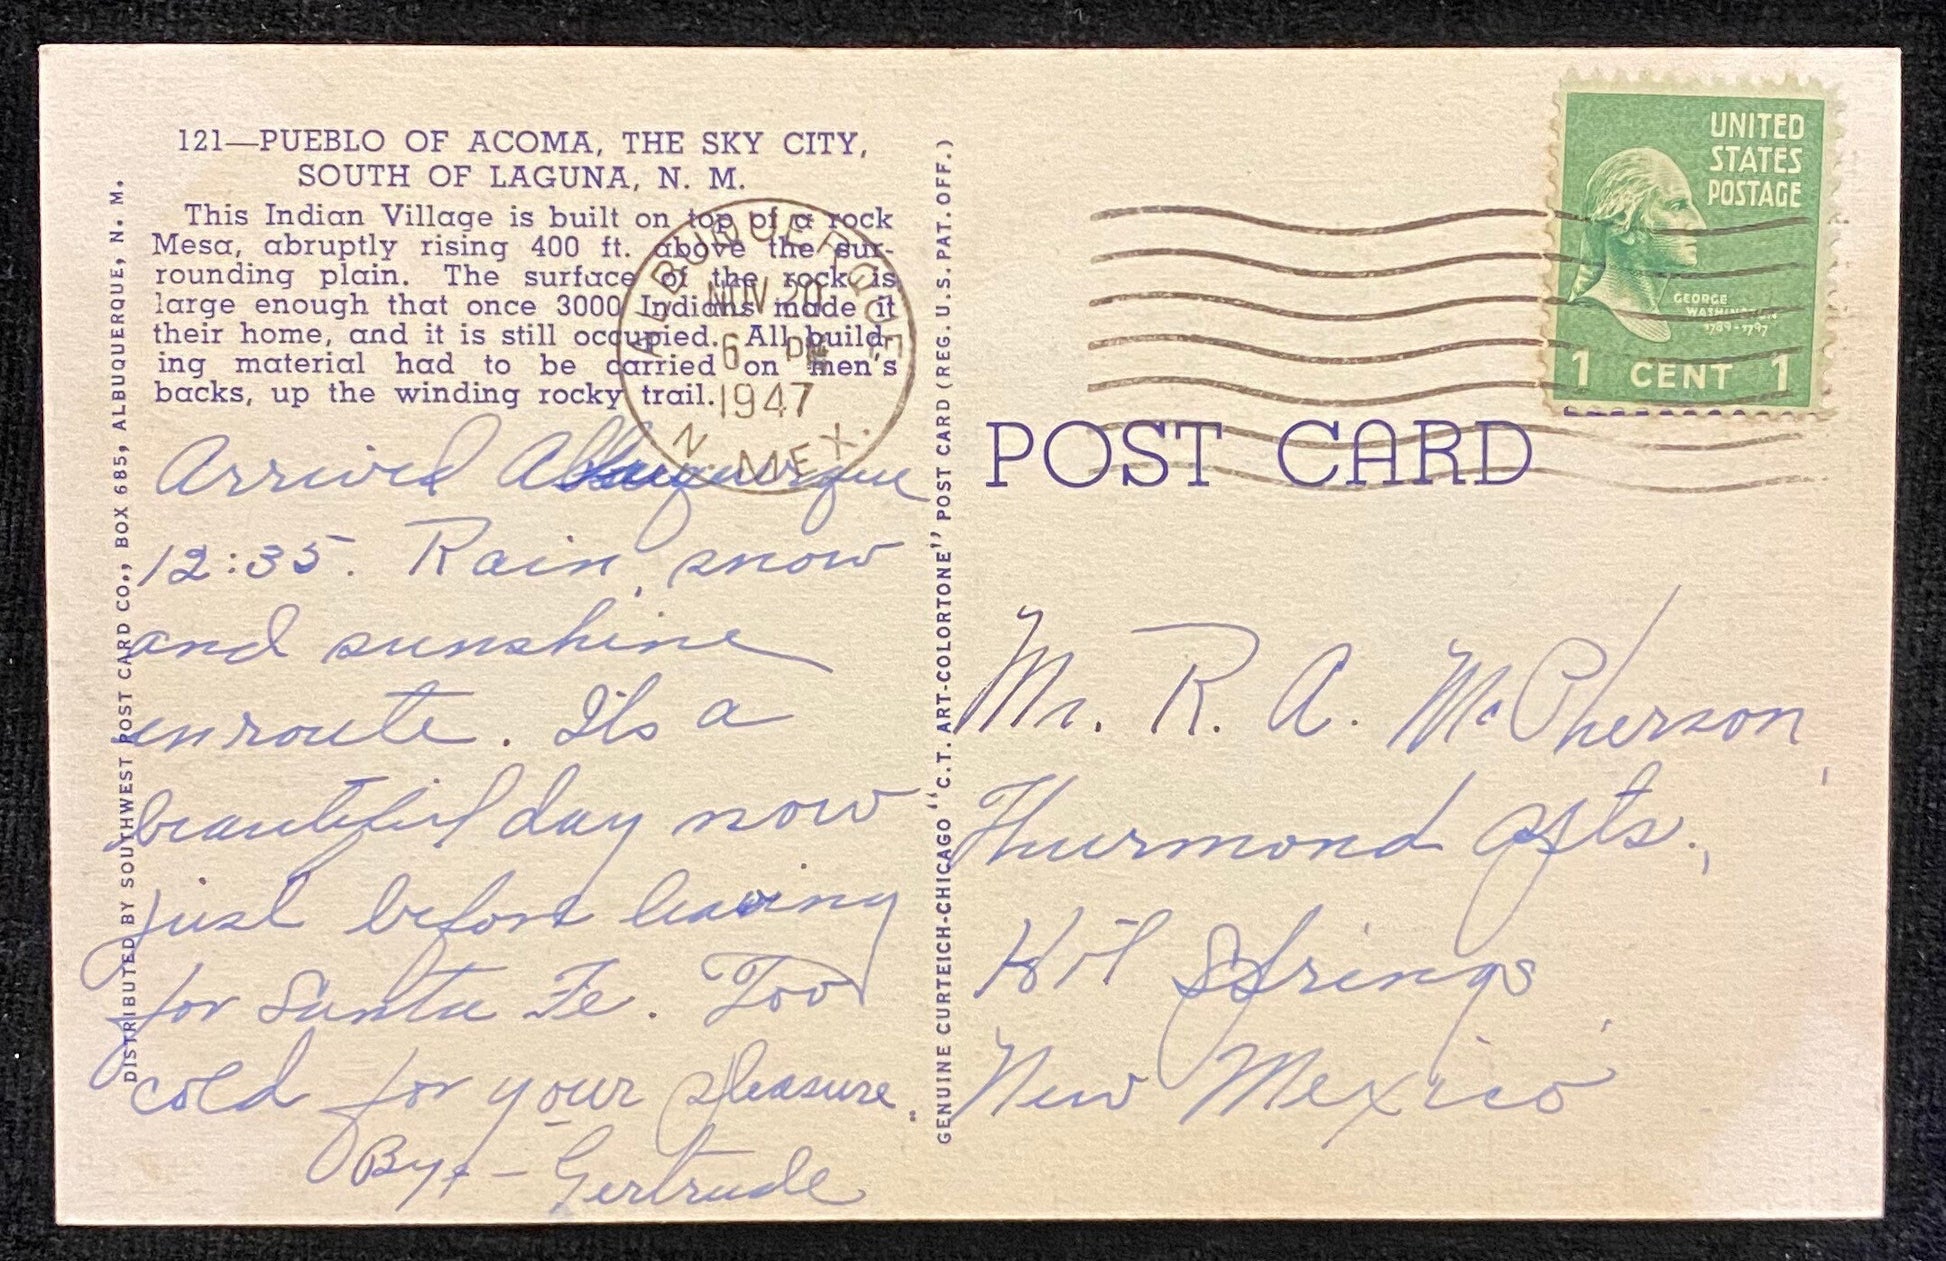 121—PUEBLO OF ACOMA, THE SKY CITY,
SOUTH OF LAGUNA, N. M.
This Indian Village is built on top of a rock
Mesa, abruptly rising 400 ft. above the sur-
rounding plain. The surface of the rock is
large enough that once 3000 Indians made it
their home, and it is still occupied. All build-
ing material had to be carried on men's
backs, up the winding rocky trail.
ALBUQUERQUE
NOV 20
6 PM
1947
N. MEX.
Arrived Albuquerque
12:35. Rain, snow
and sunshine
enroute. Its a
beautiful day now
just before leaving
for Santa Fe. Too
cold for your pleasure.
By - Gertrude
DISTRIBUTED BY SOUTHWEST POST CARD CO., BOX 685, ALBUQUERQUE, N. M.
GENUINE CURTEICH-CHICAGO "C.T. ART-COLORTONE" POST CARD (REG. U.S. PAT. OFF.)
UNITED
STATES
POSTAGE
GEORGE
WASHINGTON
1789-1797
1 CENT 1
POST CARD
Mr. R. A. McPherson,
Thurmond Apts.,
Hot Springs,
New Mexico